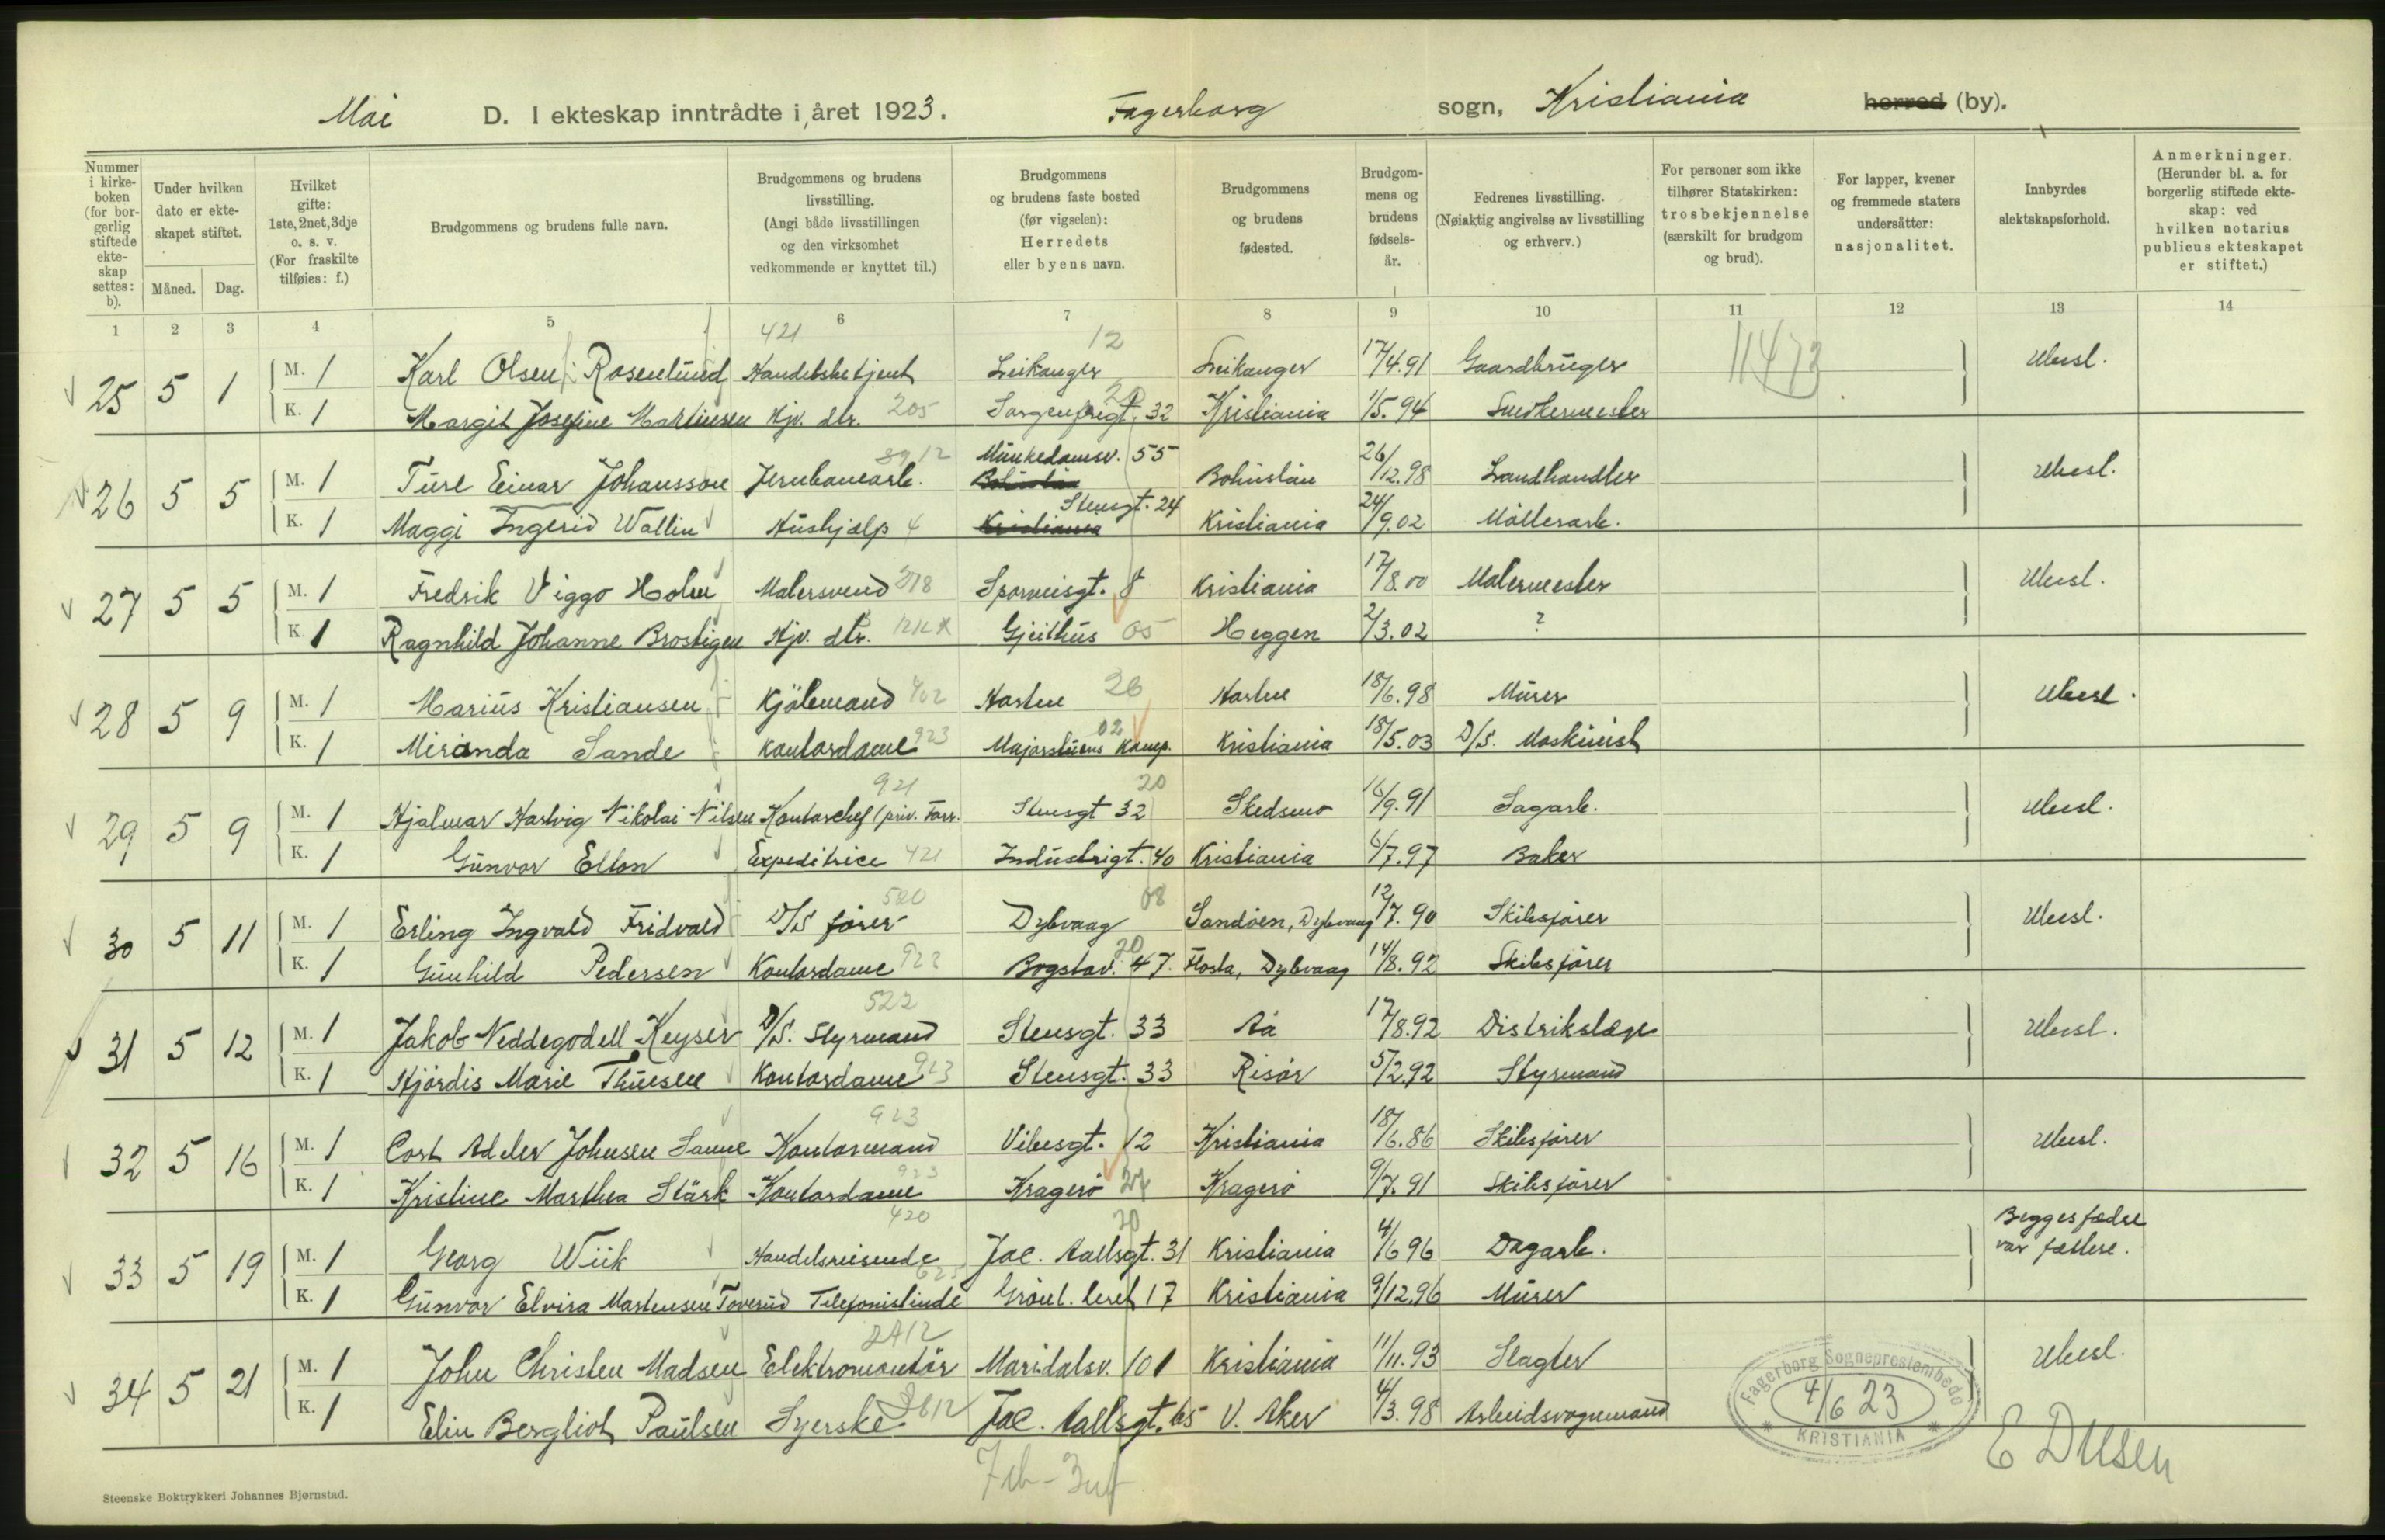 Mai D. I ekteskap inntrådte i året 1923. Fagerborg sogn, Kristiania herred (by).
Nummer i kirke-boken (for bor-gerlig stiftede ekte-skap settes: b).
Under hvilken dato er ekte-skapet stiftet.
Måned. Dag.
Hvilket gifte: 1ste, 2net, 3dje o. s. v. (For fraskilte tilføies: f.)
Brudgommens og brudens fulle navn.
Brudgommens og brudens livsstilling. (Angi både livsstillingen og den virksomhet vedkommende er knyttet til.)
Brudgommens og brudens faste bosted (før vigselen): Herredets eller byens navn.
Brudgommens og brudens fødested.
Brudgom-mens og brudens fødsels-år.
Fedrenes livsstilling. (Nøiaktig angivelse av livsstilling og erhverv.)
For personer som ikke tilhører Statskirken: trosbekjennelse (særskilt for brudgom og brud).
For lapper, kvener og fremmede staters undersåtter: nasjonalitet.
Innbyrdes slektskapsforhold.
Anmerkninger. (Herunder bl. a. for borgerlig stiftede ekte-skap: ved hvilken notarius publicus ekteskapet er stiftet.)
1 2 3 4 5 6 7 8 9 10 11 12 13 14
421 12 11473
25 5 1 M. 1 Karl Olsen Rosenlund Handelsbetjent Leikanger Leikanger 17/4.91 Gaardbruger Ubesl.
K. 1 Margit Josefine Martinsen Hjv. dtr. 205 Sorgenfrigt. 32 20 Kristiania 1/5.94 Snedkermester
26 5 5 M. 1 Ture Einar Johansson Jernbanearb. Munkedamsv. 55 Bohuslän Bohuslän 26/12.98 Landhandler Ubesl.
K. 1 Maggi Ingerid Wallin Hushjælp 4 Stensgt. 24 Kristiania Kristiania 24/9.02 Möllerarb.
27 5 5 M. 1 Fredrik Viggo Holm Malersvend 278 Sporveisgt. 8 Kristiania 17/8.00 Malermester Ubesl.
K. 1 Ragnhild Johanne Brostigen Hjv. dtr. Gjeithus 05 Heggen 2/3.02 ?
28 5 9 M. 1 Marius Kristiansen Kjölemand 702 Horten 26 Horten 18/6.98 Murer Ubesl.
K. 1 Miranda Sande Kontordame 923 Majorstuens Komp. 02 Kristiania 18/5.03 D/S. Maskinist
921 20
29 5 9 M. 1 Hjalmar Hartvig Nikolai Nilsen Kontorchef (priv. Forr. Stensgt 32 Skedsmo 16/9.91 Sagarb. Ubesl.
K. 1 Gunvor Elton Expeditrice 421 Industrigt. 40 Kristiania 6/7.97 Baker
520 08
30 5 11 M. 1 Erling Ingvald Fridvald D/S fører Dybvaag Sandöen, Dybvaag 12/7.90 Skibsfører Ubesl.
K. 1 Gunhild Pedersen Kontordame 923 Bogstav. 47. 20 Flosta, Dybvaag 14/8.92 Skibsfører
522
31 5 12 M. 1 Jakob Neddegodell Keyser D/S. Styrmand Stensgt. 33 Aa 17/8.92 Distrikslæge Ubesl.
K. 1 Hjördis Marie Thuesen Kontordame 923 Stensgt. 33 Risör 5/2.92 Styrmand
923
32 5 16 M. 1 Cort Adeler Johnsen Sanne Kontormand Vibesgt. 12 Kristiania 18/6.86 Skibsfører Ubesl.
923
K. 1 Kristine Marthea Stärk Kontordame Kragerö 24 Kragerö 9/7.91 Skibsfører
420 20
33 5 19 M. 1 Georg Wiik Handelsreisende Jac. Aallsgt. 31 Kristiania 4/6 96 Dagarb. Begges fædre var fættere.
K. 1 Gunvor Elvira Martensen Toverud Telefonistinde 625 Grönl. leret 17 Kristiania 9/12.96 Murer
2412
34 5 21 M. 1 John Christen Madsen Elektromontör Maridalsv. 101 Kristiania 11/11.93 Slagter Ubesl.
K. 1 Elin Bergliot Paulsen Syerske 2612 Jac. Aallsgt. 65 V. Aker 4/3.98 Arbeidsvognmand
Fagerborg Sogneprestembede 4/6 23 KRISTIANIA
Steenske Boktrykkeri Johannes Bjørnstad.